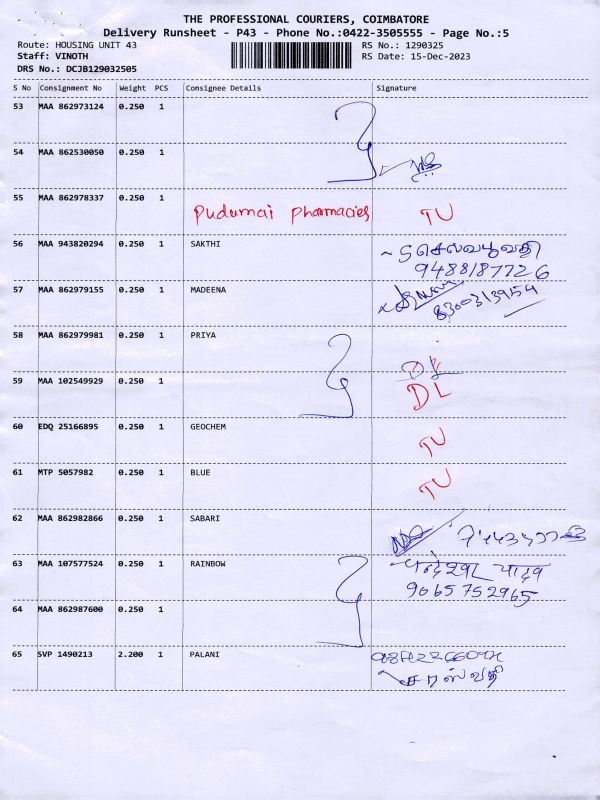 THE PROFESSIONAL COURIERS, COIMBATORE
Delivery Runsheet - P43 - Phone No.:0422-3505555 - Page No.:5
Route: HOUSING UNIT 43 RS No.: 1290325
Staff: VINOTH RS Date: 15-Dec-2023
DRS No.: DCJB129032505
S No Consignment No Weight PCS Consignee Details Signature
53 MAA 862973124 0.250 1
54 MAA 862530050 0.250 1
55 MAA 862978337 0.250 1 Pudumai pharmacies TU
56 MAA 943820294 0.250 1 SAKTHI
9488187726
57 MAA 862979155 0.250 1 MADEENA
83003139154
58 MAA 862979981 0.250 1 PRIYA
59 MAA 102549929 0.250 1 DL
60 EDQ 25166895 0.250 1 GEOCHEM TU
61 MTP 5057982 0.250 1 BLUE TU
62 MAA 862982866 0.250 1 SABARI
63 MAA 107577524 0.250 1 RAINBOW
9065752965
64 MAA 862987600 0.250 1
65 SVP 1490213 2.200 1 PALANI
சரஸ்வதி